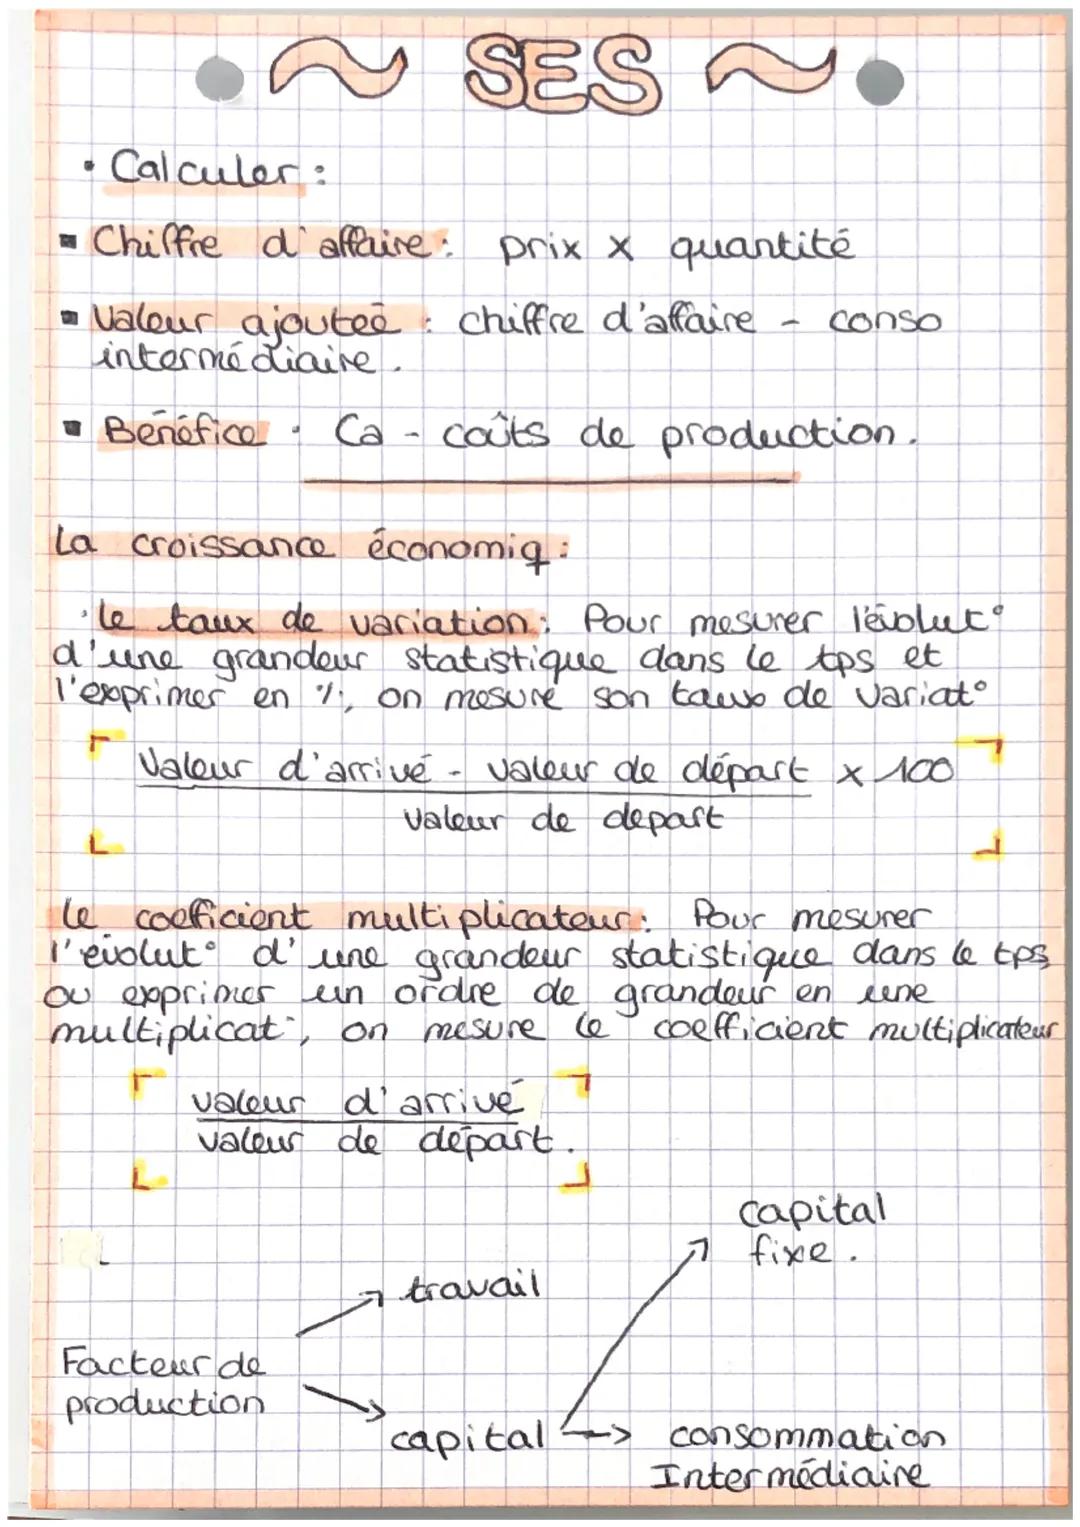 ~ SES ~
• Calculer :
▪ Chiffre d'affaire : prix x quantité
▪ Valeur ajouteé : chiffre d'affaire - conso
intermédiaire.
▪ Bénéfice : Ca - coûts de production.
La croissance économiq :
• le taux de variation : Pour mesurer l'évolut°
d'une grandeur statistique dans le tps et
l'exprimer en %, on mesure son taux de variat°
Valeur d'arrivé - valeur de départ x 100
valeur de depart
le coefficient multiplicateur : Pour mesurer
l'évolut° d'une grandeur statistique dans le tps
ou exprimer un ordre de grandeur en une
multiplicat°, on mesure le coefficient multiplicateur
valeur d'arrivé
valeur de départ.
capital
fixe.
travail
Facteur de
production
capital → consommation
Intermédiaire